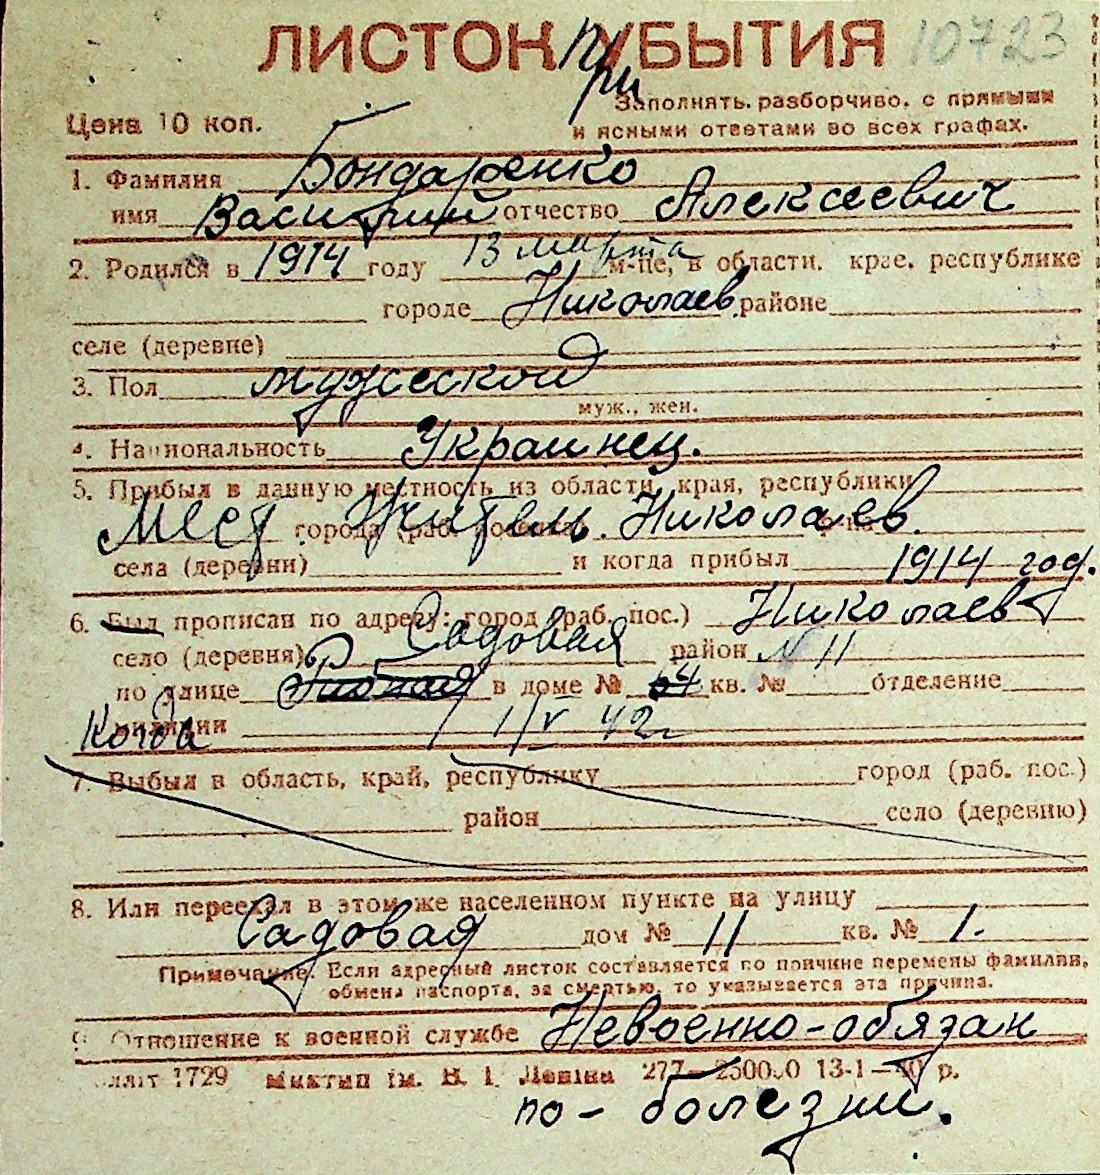 ЛИСТОК УБЫТИЯ 10723
При
Цена 10 коп.
Заполнять разборчиво, с прямыми
и ясными ответами во всех графах.
1. Фамилия Бондаренко
имя Василий отчество Алексеевич
2. Родился в 1914 году 13 марта м-це, в области, крае, республике
городе Николаев районе
селе (деревне)
3. Пол мужской
муж., жен.
4. Национальность Украинец.
5. Прибыл в данную местность из области, края, республики
Мест. Житель. Николаев. города (раб. поселка)
села (деревни) и когда прибыл 1914 год.
6. Был прописан по адресу: город (раб. пос.) Николаев
село (деревня) Садовая район № 11
по улице в доме № 64 кв. № отделение
милиции Когда 1/V 42 г.
7. Выбыл в область, край, республику город (раб. пос.)
район село (деревню)
8. Или переехал в этом же населенном пункте на улицу
Садовая дом № 11 кв. № 1.
Примечание. Если адресный листок составляется по причине перемены фамилии,
обмена паспорта, за смертью, то указывается эта причина.
9. Отношение к военной службе Невоенно-обязан
1729 им. В. І. Леніна 277—250000 13-1—40 р.
по-болезни.